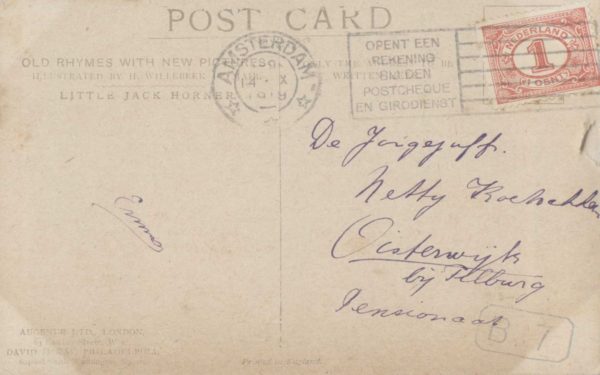 POST CARD
OLD RHYMES WITH NEW PICTURES
ILLUSTRATED BY H. WILLEBEEK
LITTLE JACK HORNER
AMSTERDAM
OPENT EEN
REKENING
BIJ DEN
POSTCHEQUE
EN GIRODIENST
NEDERLAND
1
CENT
De Jongejuff.
Netty
Oisterwijk
bij Tilburg
Pensionaat
AUGENER LTD., LONDON.
DAVID PHILADELPHIA
Printed in England.
B 7